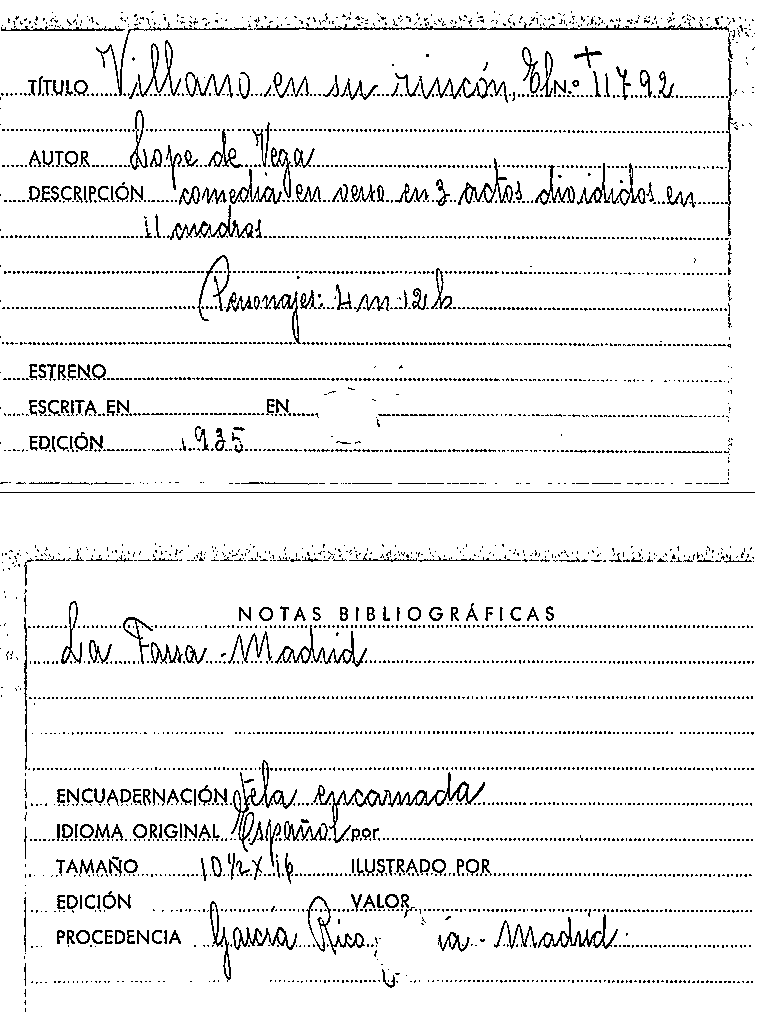 TÍTULO Villano en su rincón, El Nº + 11792
AUTOR Lope de Vega
DESCRIPCIÓN comedia en verso en 3 actos divididos en
11 cuadros
Personajes: 4 m 12 h
ESTRENO
ESCRITA EN EN
EDICIÓN 1935
NOTAS BIBLIOGRÁFICAS
La Farsa - Madrid
ENCUADERNACIÓN tela encarnada
IDIOMA ORIGINAL Español por
TAMAÑO 10 1/2 X 16 ILUSTRADO POR
EDICIÓN VALOR
PROCEDENCIA García Rico ía - Madrid